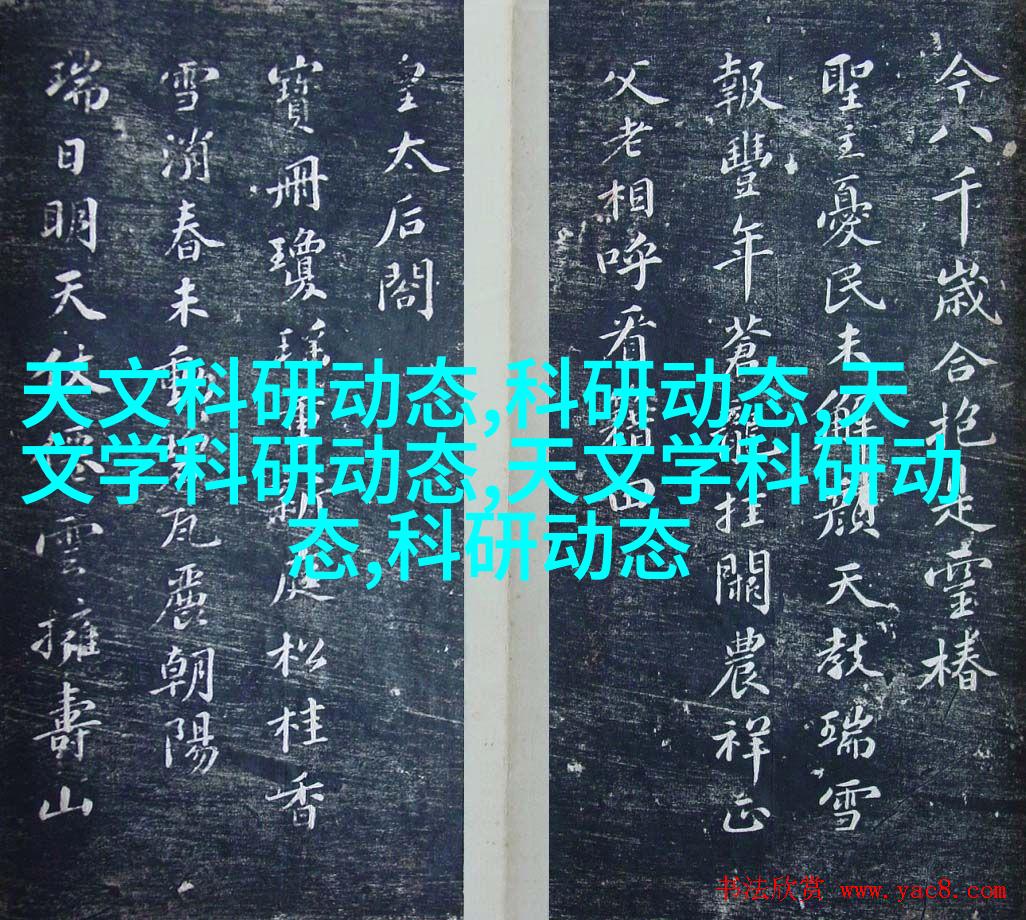 今八千歲合抱是靈椿
聖主憂民未解顏天教瑞雪
報豐年蒼龍挂闕農祥正
父老相呼看藉田
皇太后閣
寶冊瓊 庭松桂香
雪消春未 瓦麗朝陽
瑞日明天仗 雲擁壽山
天文科研动态,科研动态,天
文学科研动态,天文学科研动
态,科研动态
书法欣赏 www.yac8.com